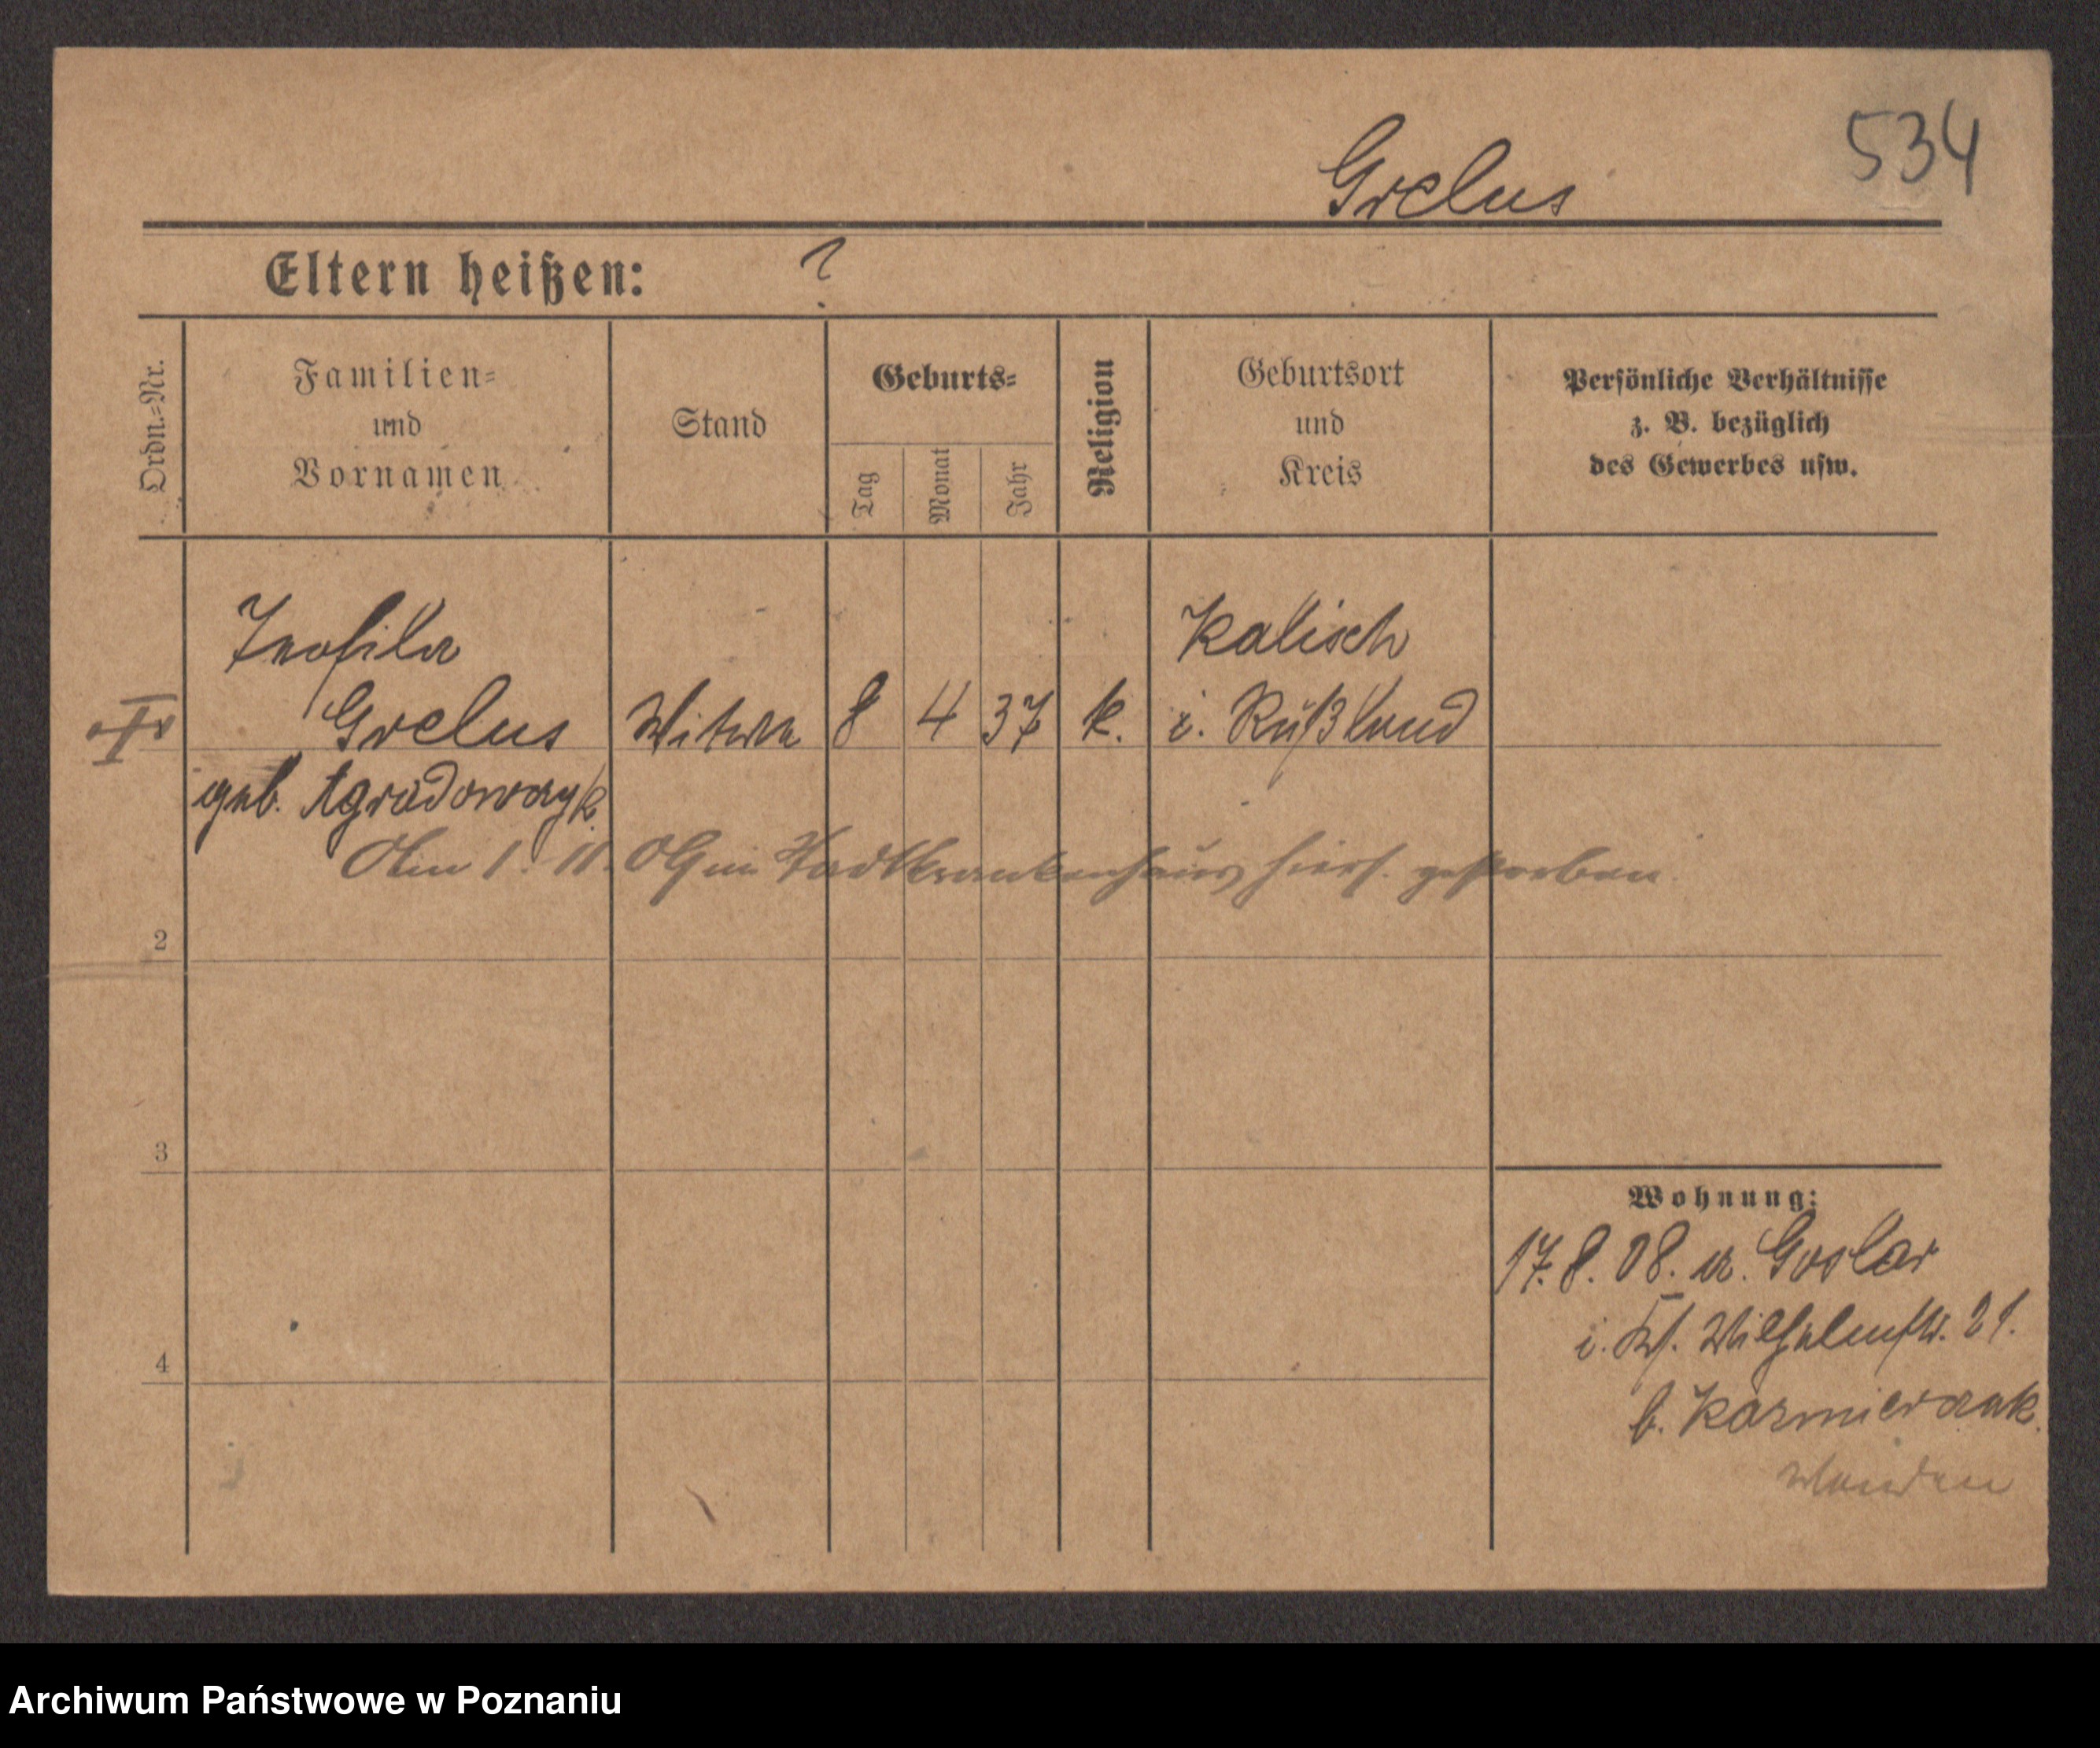 534
Grelus
Eltern heißen: ?
Ordn.=Nr.
Familien=
und
Vornamen
Stand
Geburts=
Tag
Monat
Jahr
Religion
Geburtsort
und
Kreis
Persönliche Verhältnisse
z. B. bezüglich
des Gewerbes usw.
Teofila
Grelus
geb.
Witwe
8
4
37
k.
Kalisch
i. Rußland
Am 1. 11. 09 im Stadtkrankenhaus hiers. gestorben.
2
3
4
Wohnung:
17.8.08. a. Goslar
i. Wilhelmstr. 21.
b.
Archiwum Państwowe w Poznaniu